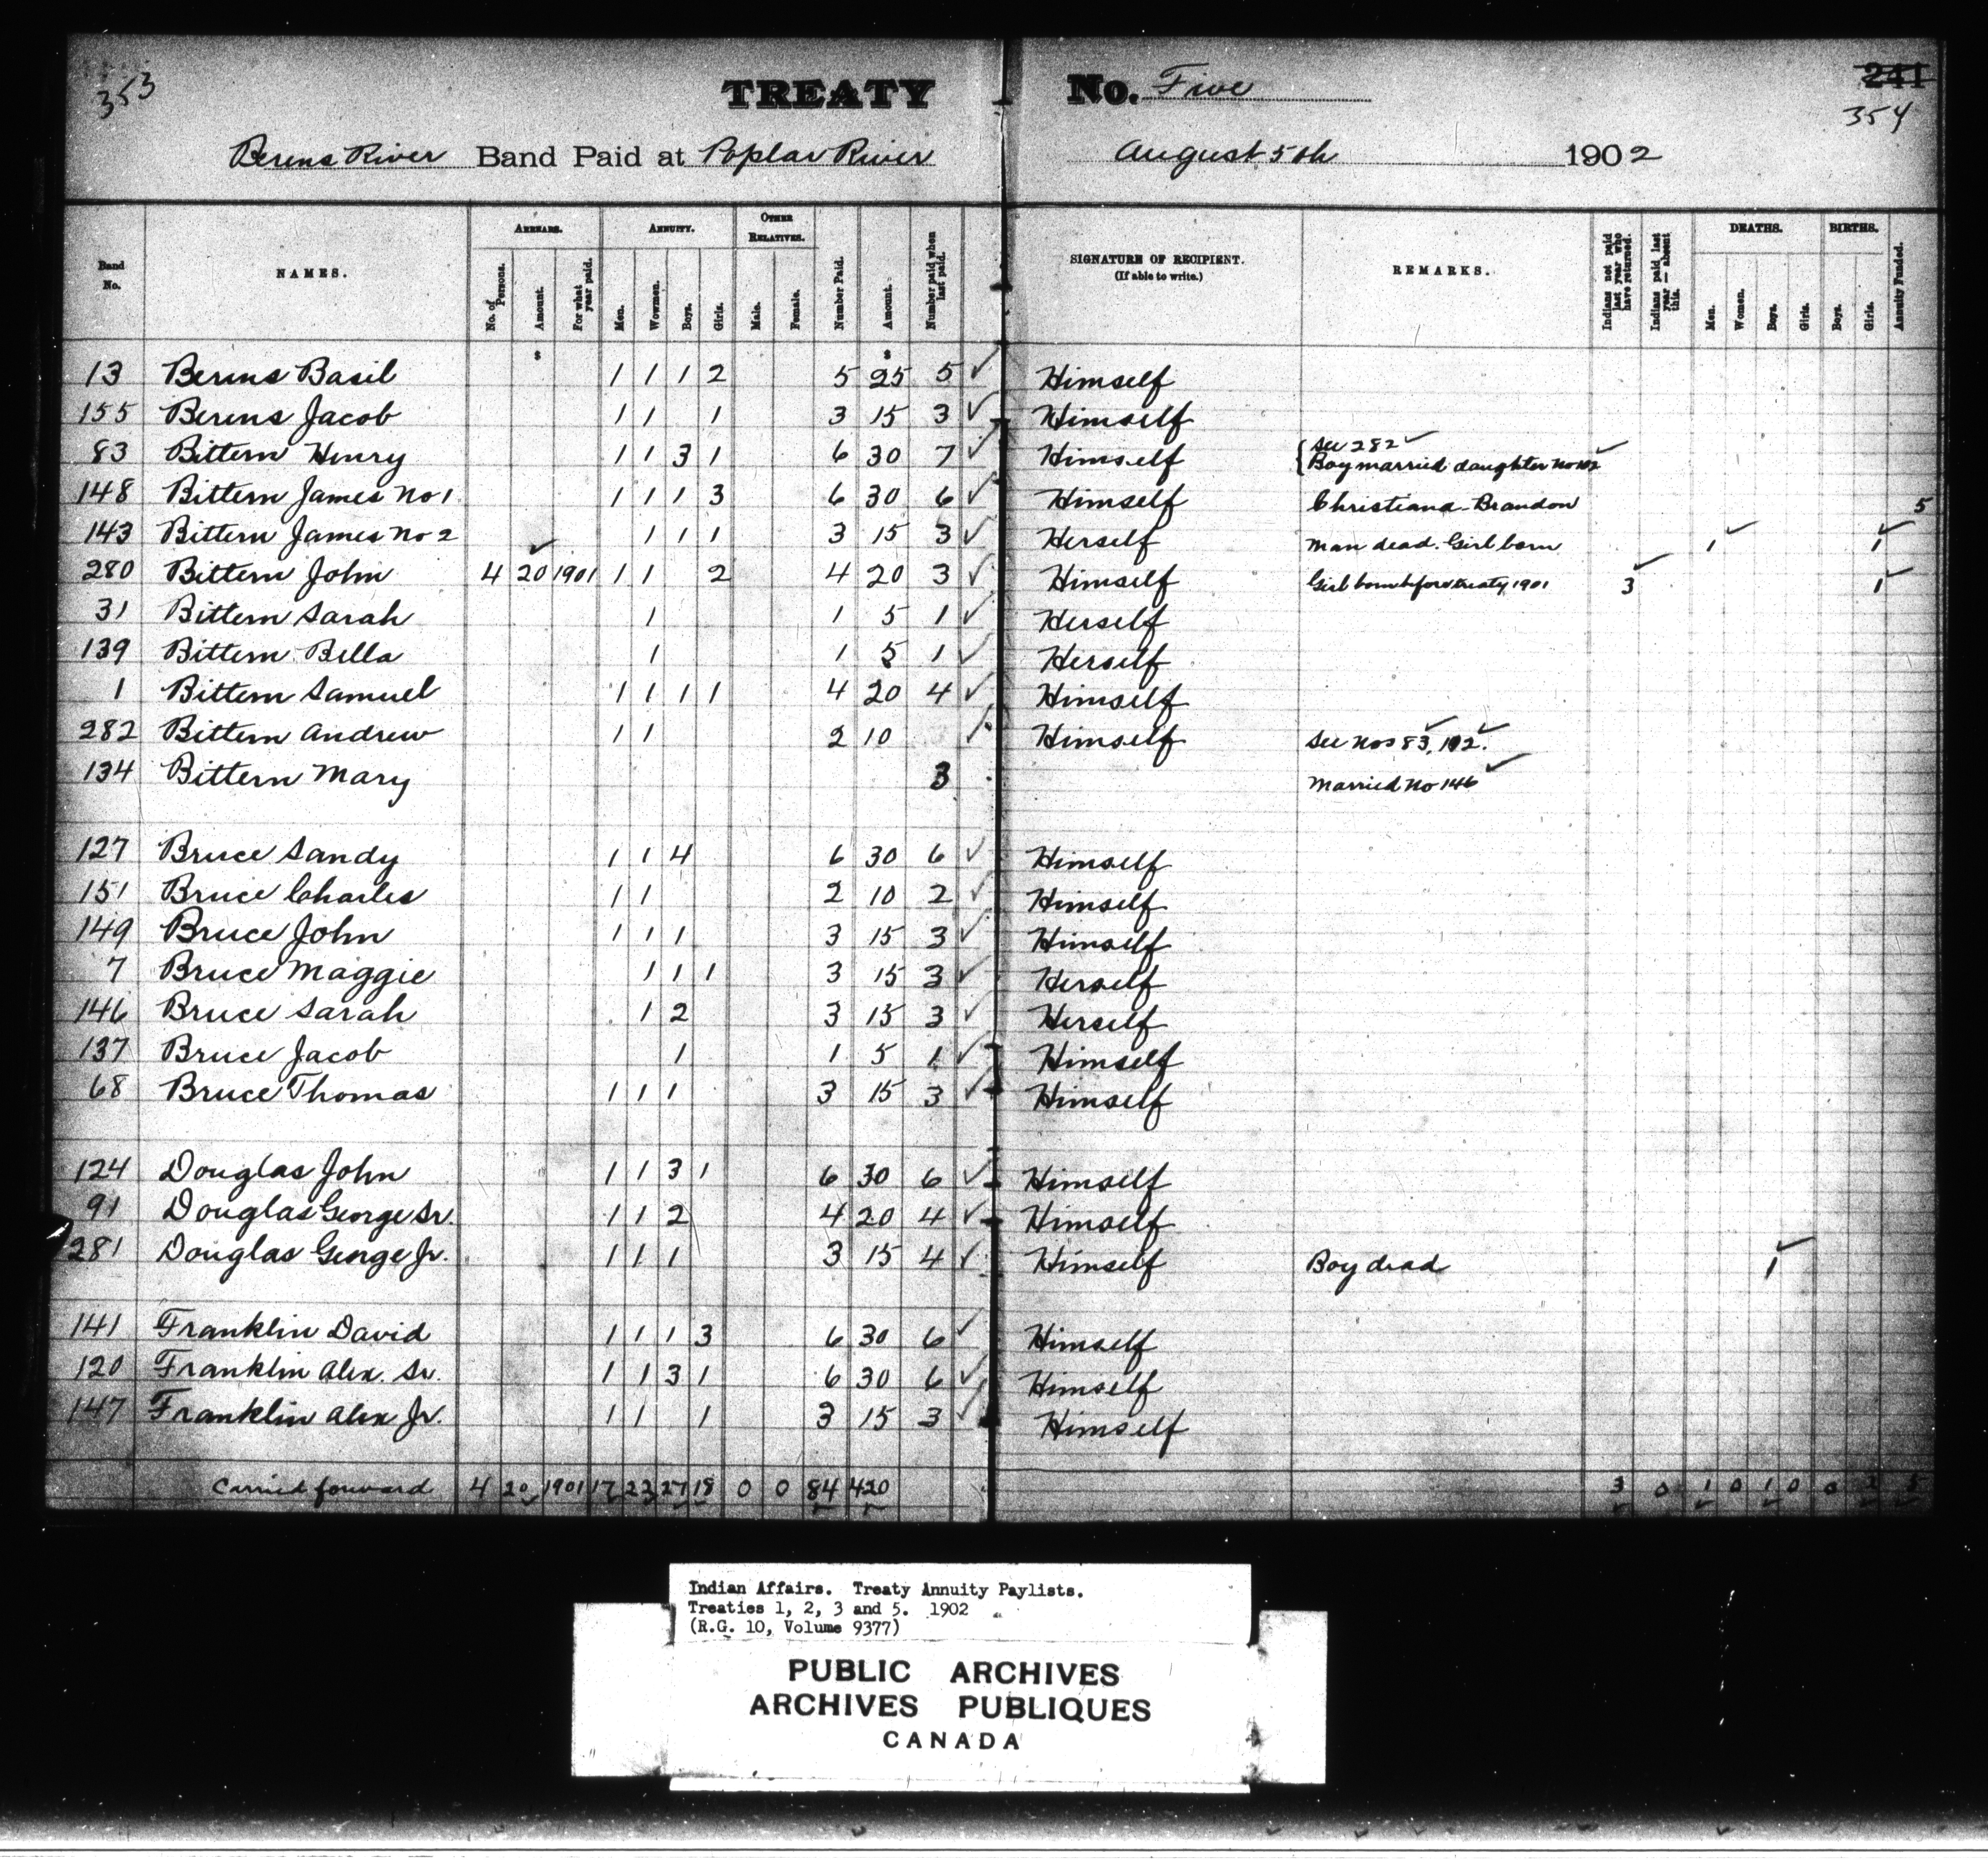 353
TREATY No. Five
241
354
Berens River Band Paid at Poplar River August 5th 1902
Band No. NAMES. ARREARS. No. of Persons. Amount. For what year paid. ANNUITY. Men. Women. Boys. Girls. OTHER RELATIVES. Male. Female. Number Paid. Amount. Number paid when last paid. SIGNATURE OF RECIPIENT. (If able to write.) REMARKS. Indians not paid last year who have returned. Indians paid last year — absent this. DEATHS. Men. Women. Boys. Girls. BIRTHS. Boys. Girls. Annuity Funded.
$ $
13 Berens Basil 1 1 1 2 5 25 5 ✓ Himself
155 Berens Jacob 1 1 1 3 15 3 ✓ Himself
83 Bittern Henry 1 1 3 1 6 30 7 ✓ Himself { See 282 ✓
Boy married daughter No 102 ✓
148 Bittern James No 1 1 1 1 3 6 30 6 ✓ Himself Christiana Brandon 5
143 Bittern James No 2 1 1 1 3 15 3 ✓ Herself Man dead. Girl born 1 ✓ 1 ✓
280 Bittern John 4 20 ✓ 1901 1 1 2 4 20 3 ✓ Himself Girl born before treaty 1901 3 ✓ 1 ✓
31 Bittern Sarah 1 1 5 1 ✓ Herself
139 Bittern Bella 1 1 5 1 ✓ Herself
1 Bittern Samuel 1 1 1 1 4 20 4 ✓ Himself
282 Bittern Andrew 1 1 2 10 ✓ Himself See Nos 83, ✓ 102. ✓
134 Bittern Mary 3 Married No 146 ✓
127 Bruce Sandy 1 1 4 6 30 6 ✓ Himself
151 Bruce Charles 1 1 2 10 2 ✓ Himself
149 Bruce John 1 1 1 3 15 3 ✓ Himself
7 Bruce Maggie 1 1 1 3 15 3 ✓ Herself
146 Bruce Sarah 1 2 3 15 3 ✓ Herself
137 Bruce Jacob 1 1 5 1 ✓ Himself
68 Bruce Thomas 1 1 1 3 15 3 ✓ Himself
124 Douglas John 1 1 3 1 6 30 6 ✓ Himself
91 Douglas George Sr. 1 1 2 4 20 4 ✓ Himself
281 Douglas George Jr. 1 1 1 3 15 4 ✓ Himself Boy dead 1 ✓
141 Franklin David 1 1 1 3 6 30 6 ✓ Himself
120 Franklin Alex. Sr. 1 1 3 1 6 30 6 ✓ Himself
147 Franklin Alex Jr. 1 1 1 3 15 3 ✓ Himself
Carried forward 4 20 1901 17 23 27 18 0 0 84 420 3 0 1 0 1 0 0 2 5
Indian Affairs. Treaty Annuity Paylists.
Treaties 1, 2, 3 and 5. 1902
(R.G. 10, Volume 9377)
PUBLIC ARCHIVES
ARCHIVES PUBLIQUES
CANADA